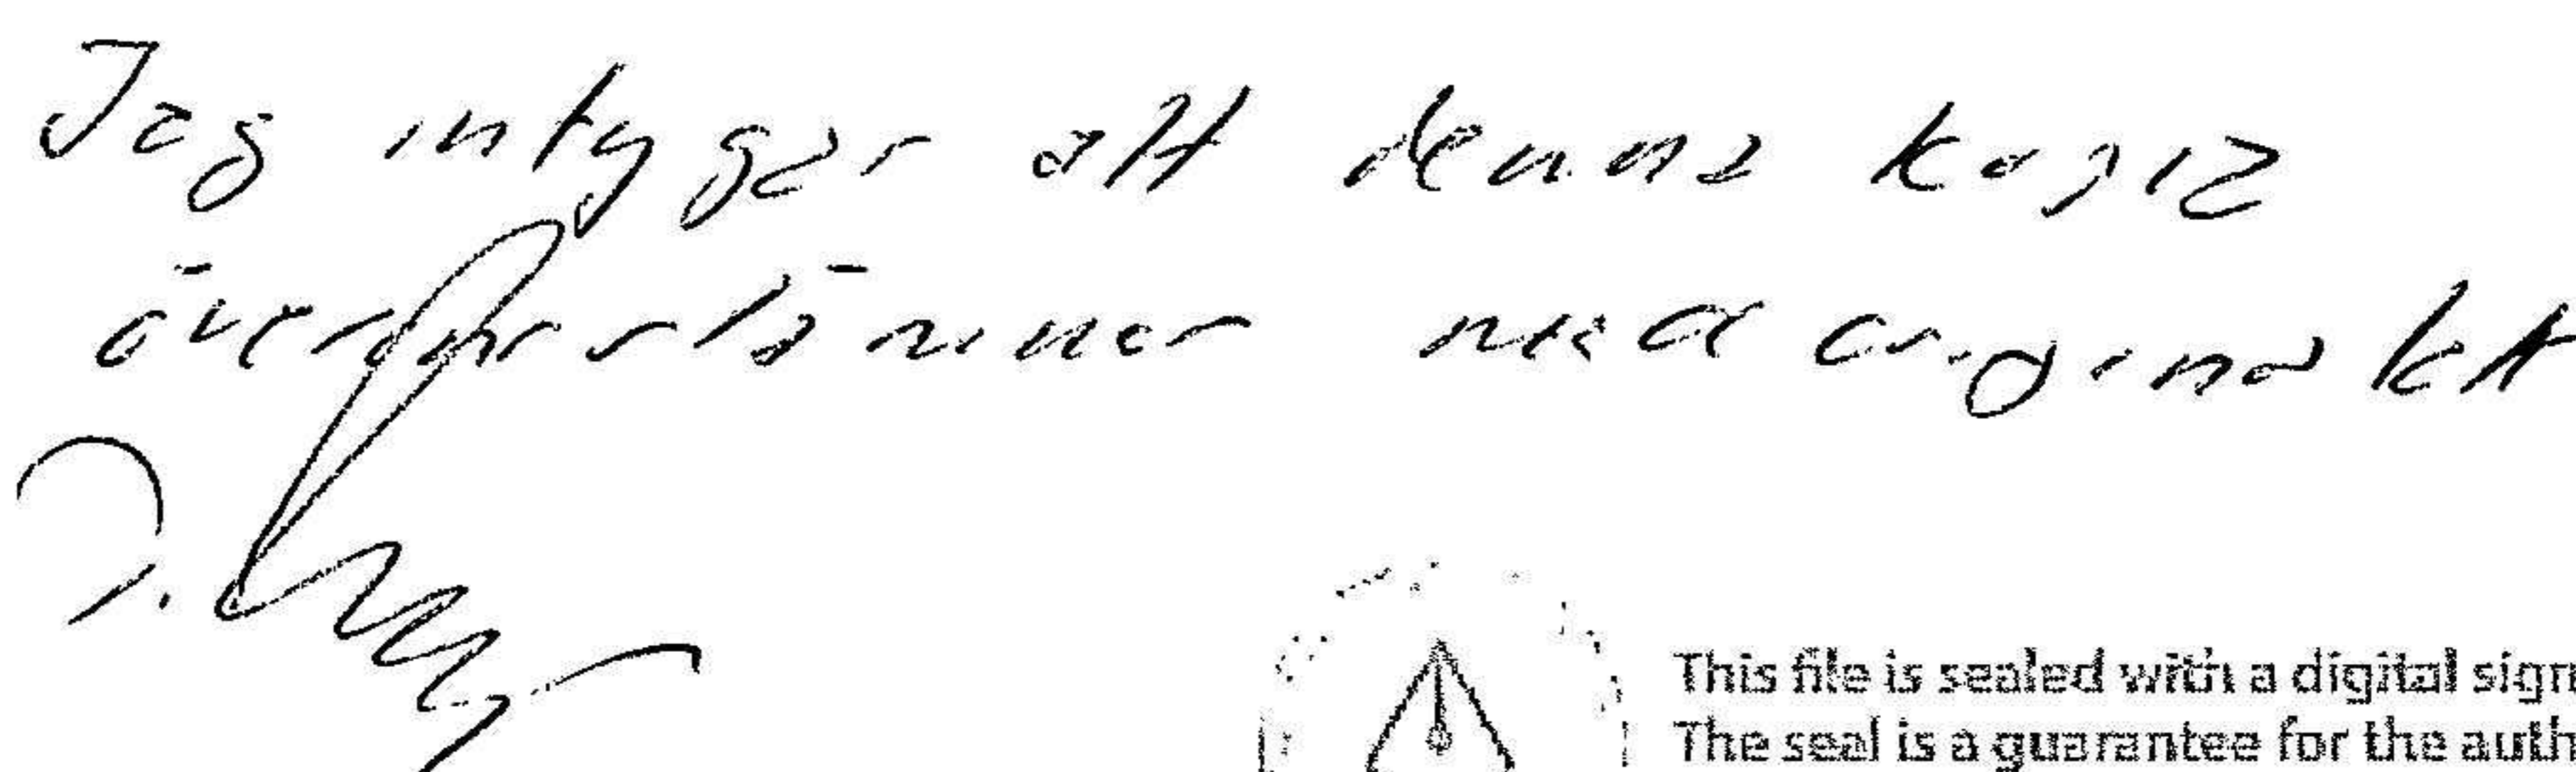 Jag intygar att denna kopia
överensstämmer med originalet
This file is sealed with a digital sign
The seal is a guarantee for the auth